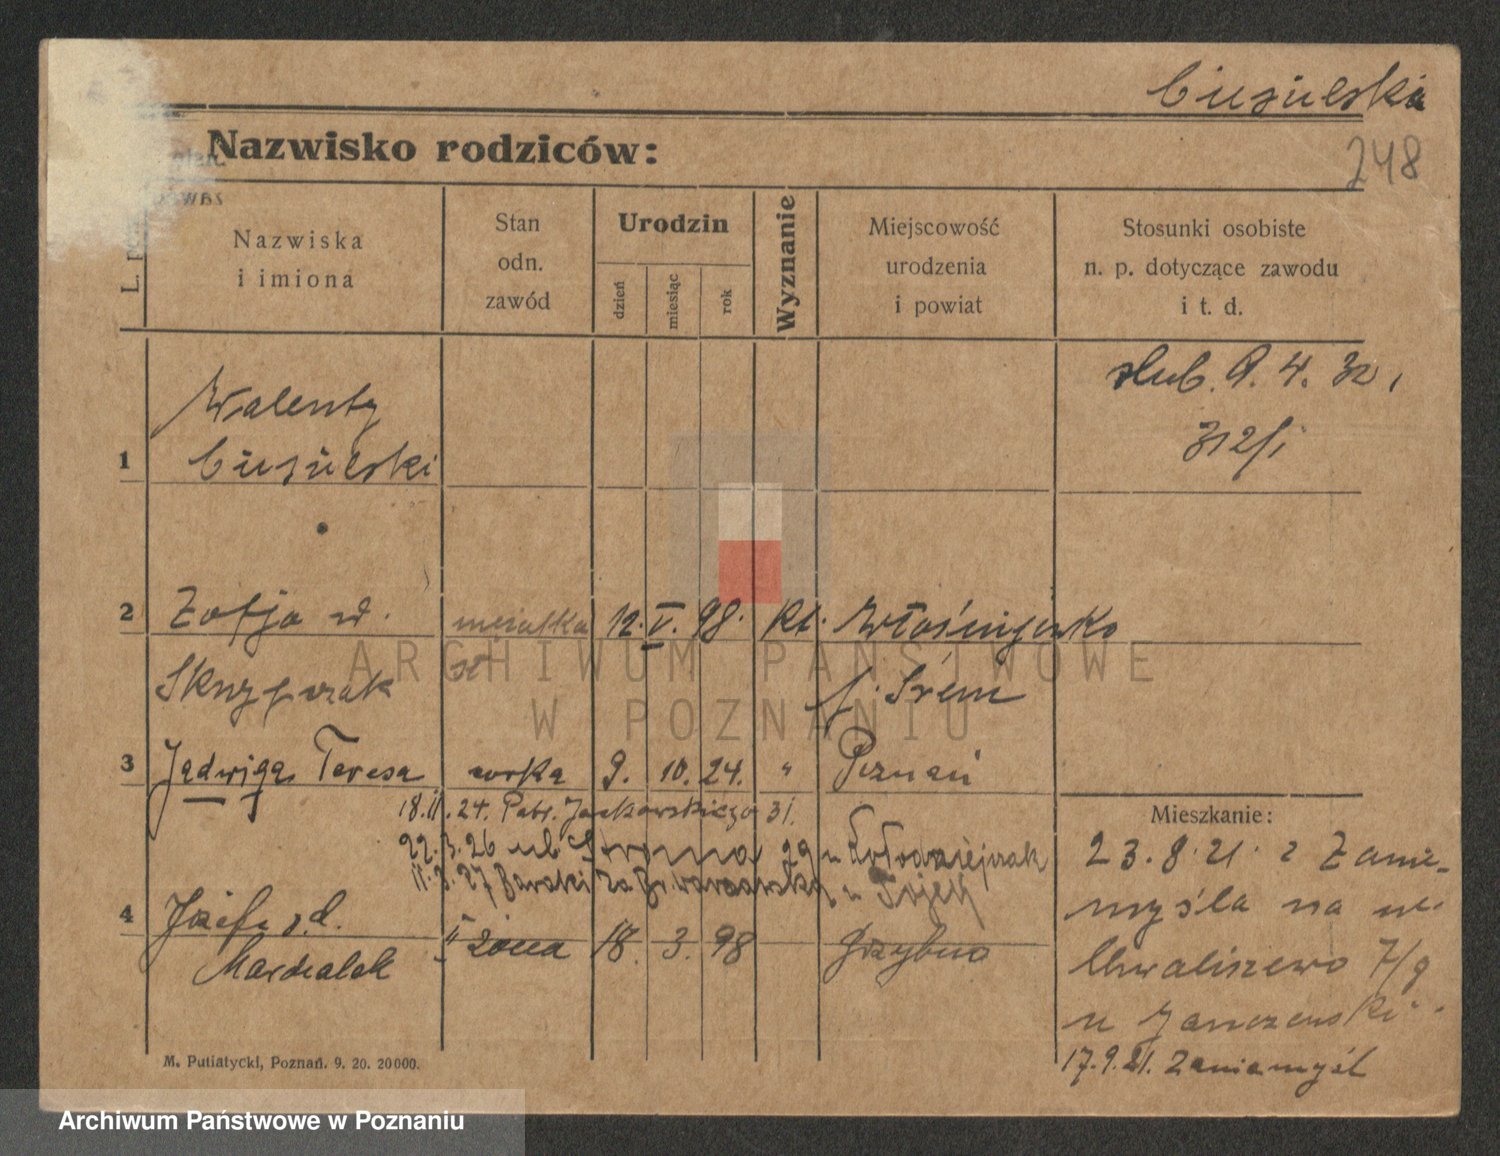 Ciesielski
248
Nazwisko rodziców:
Nazwiska
i imiona
Stan
odn.
zawód
Urodzin
dzień
miesiąc
rok
Wyznanie
Miejscowość
urodzenia
i powiat
Stosunki osobiste
n. p. dotyczące zawodu
i t. d.
1
Walenty
Ciesielski
ślub. 9. 4. 32,
312/1
2
Zofja
12. V. 98. kt. Włościejewki
Skrzypczak
p. Śrem
3
Jadwiga Teresa córka 9. 10. 24. " Poznań
18.11.24. Patr. Jackowskiego 31.
22.3.26 ul. Stroma 29 u Kołodziejczak
11.3.27 Baraki za Br. warszawską u
4
Józefa z d. II żona 18. 3. 98 Grzybno
Marcialek
Mieszkanie:
23.8.21. z Zanie-
myśla na ul.
Chwaliszewo 7/9
u Janczewski
17.9.21. Zaniemyśl
M. Putiatycki, Poznań. 9. 20. 20000.
ARCHIWUM PAŃSTWOWE
W POZNANIU
Archiwum Państwowe w Poznaniu